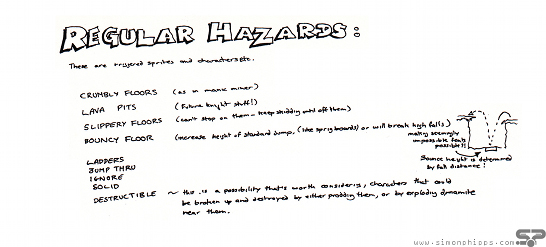 REGULAR HAZARDS:
These are triggered sprites and characters etc.
CRUMBLY FLOORS (as in manic miner)
LAVA PITS (Future knight stuff!)
SLIPPERY FLOORS (can't stop on them - keep skidding until off them)
BOUNCY FLOOR (increase height of standard jump. (like spring boards) or will break high falls)
making seemingly
impossible feats
possible!!
Bounce height is determined
by fall distance!
LADDERS
JUMP THRU
IGNORE
SOLID
DESTRUCTIBLE ~ this is a possibility that's worth considering, characters that could
be broken up and destroyed by either prodding them, or by exploding dynamite
near them.
www.simonphipps.com
SP